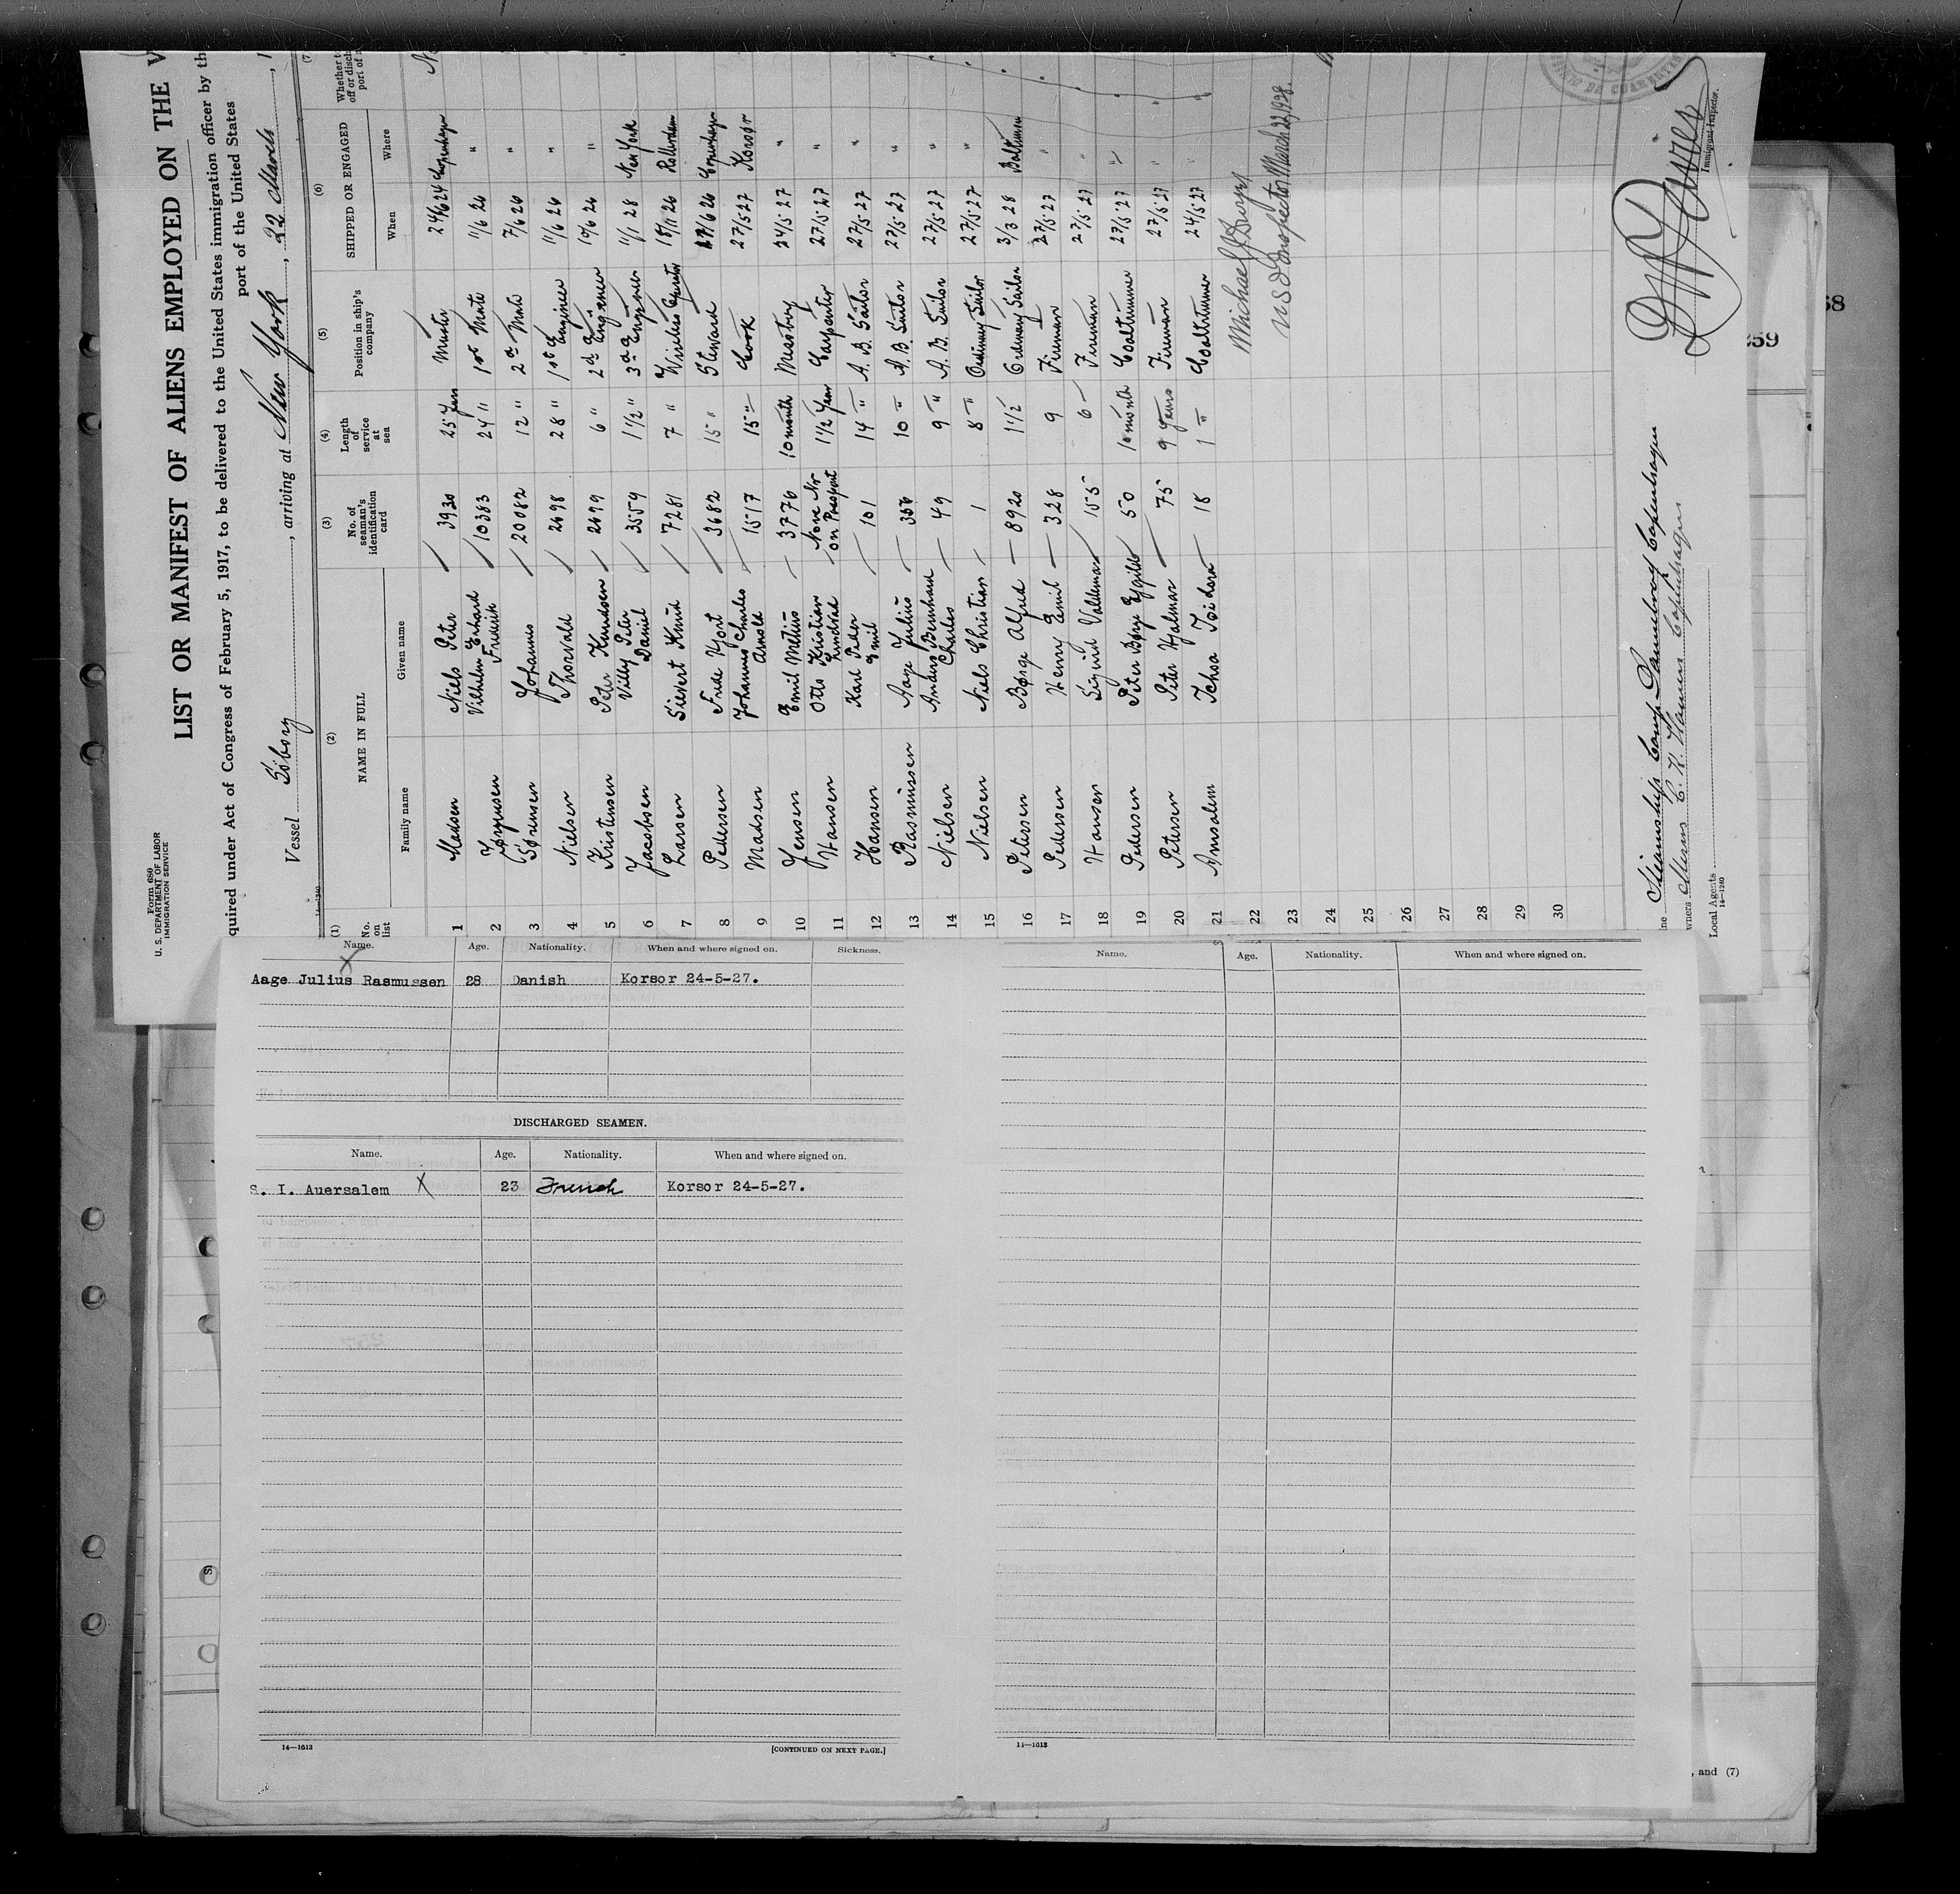 Form 680
U. S. DEPARTMENT OF LABOR
IMMIGRATION SERVICE
LIST OR MANIFEST OF ALIENS EMPLOYED ON THE V
quired under Act of Congress of February 5, 1917, to be delivered to the United States immigration officer by th
port of the United States
Vessel Siborg, arriving at New York, 22 March, 1
14—1240
(1) (2) (3) (4) (5) (6) (7)
No. on list NAME IN FULL No. of seaman's identification card Length of service at sea Position in ship's company SHIPPED OR ENGAGED Whether to off or disch port of
Family name Given name When Where
1 Madsen Niels Peter 3930 25 Years Master 24/6 24 Copenhagen
2 Jørgensen Vilhelm Frederik 10383 24 " 1st Mate 11/6 26 "
3 Sørensen Johannes 20082 12 " 2d Mate 7/6 26 "
4 Nielsen Thorvald 2498 28 " 1st Engineer 11/6 26 "
5 Kristensen Peter Knudsen 2499 6 " 2d Engineer 10/6 26 "
6 Jacobsen Villy Peter Daniel 3559 1 1/2 " 3d Engineer 11/1 28 New York
7 Larsen Sievert Knud 7281 7 " Wireless Operator 18/11 26 Rotterdam
8 Pedersen Frede Hjort 3682 15 " Steward 27/6 26 Copenhagen
9 Madsen Johannes Charles Arnold 1517 15 " Cook 27/5 27 Korsør
10 Jensen Emil Metius 3776 10 month Messboy 24/5 27 "
11 Hansen Otto Kristian None No on Passport 1 1/2 Year Carpenter 27/5 27 "
12 Hansen Karl Peder Emil 101 14 " A. B. Sailor 27/5 27 "
13 Rasmussen Aage Julius 356 10 " A. B. Sailor 27/5 27 "
14 Nielsen Anders Bernhard Charles 49 9 " A. B. Sailor 27/5 27 "
15 Nielsen Niels Christian 1 8 " Ordinary Sailor 27/5 27 "
16 Petersen Børge Alfred 8920 1 1/2 Ordinary Sailor 3/3 28
17 Pedersen Henry Emil 328 9 Fireman 27/5 27 "
18 Hansen Sigurd Valdemar 155 6 Fireman 27/5 27 "
19 Pedersen Peter Børge 50 10 month Coaltrimmer 27/5 27 "
20 Petersen Peter Hjalmar 75 9 Years Fireman 27/5 27 "
21 Amsalem Ichoa Isidore 18 1 " Coaltrimmer 24/5 27 "
22
23
24
25
26
27
28
29
30
March 22, 1928.
ine Steamship Comp. Dannebrog Copenhagen
wners Messrs C. K. Hansen Copenhagen
Local Agents
14—1240
Immigrant Inspector.
Name. Age. Nationality. When and where signed on. Sickness.
Aage Julius Rasmussen 28 Danish Korsor 24-5-27.
DISCHARGED SEAMEN.
Name. Age. Nationality. When and where signed on.
S. I. Auersalem X 23 French Korsor 24-5-27.
14—1613
[CONTINUED ON NEXT PAGE.]
Name. Age. Nationality. When and where signed on.
14—1613
58
259
, and (7)